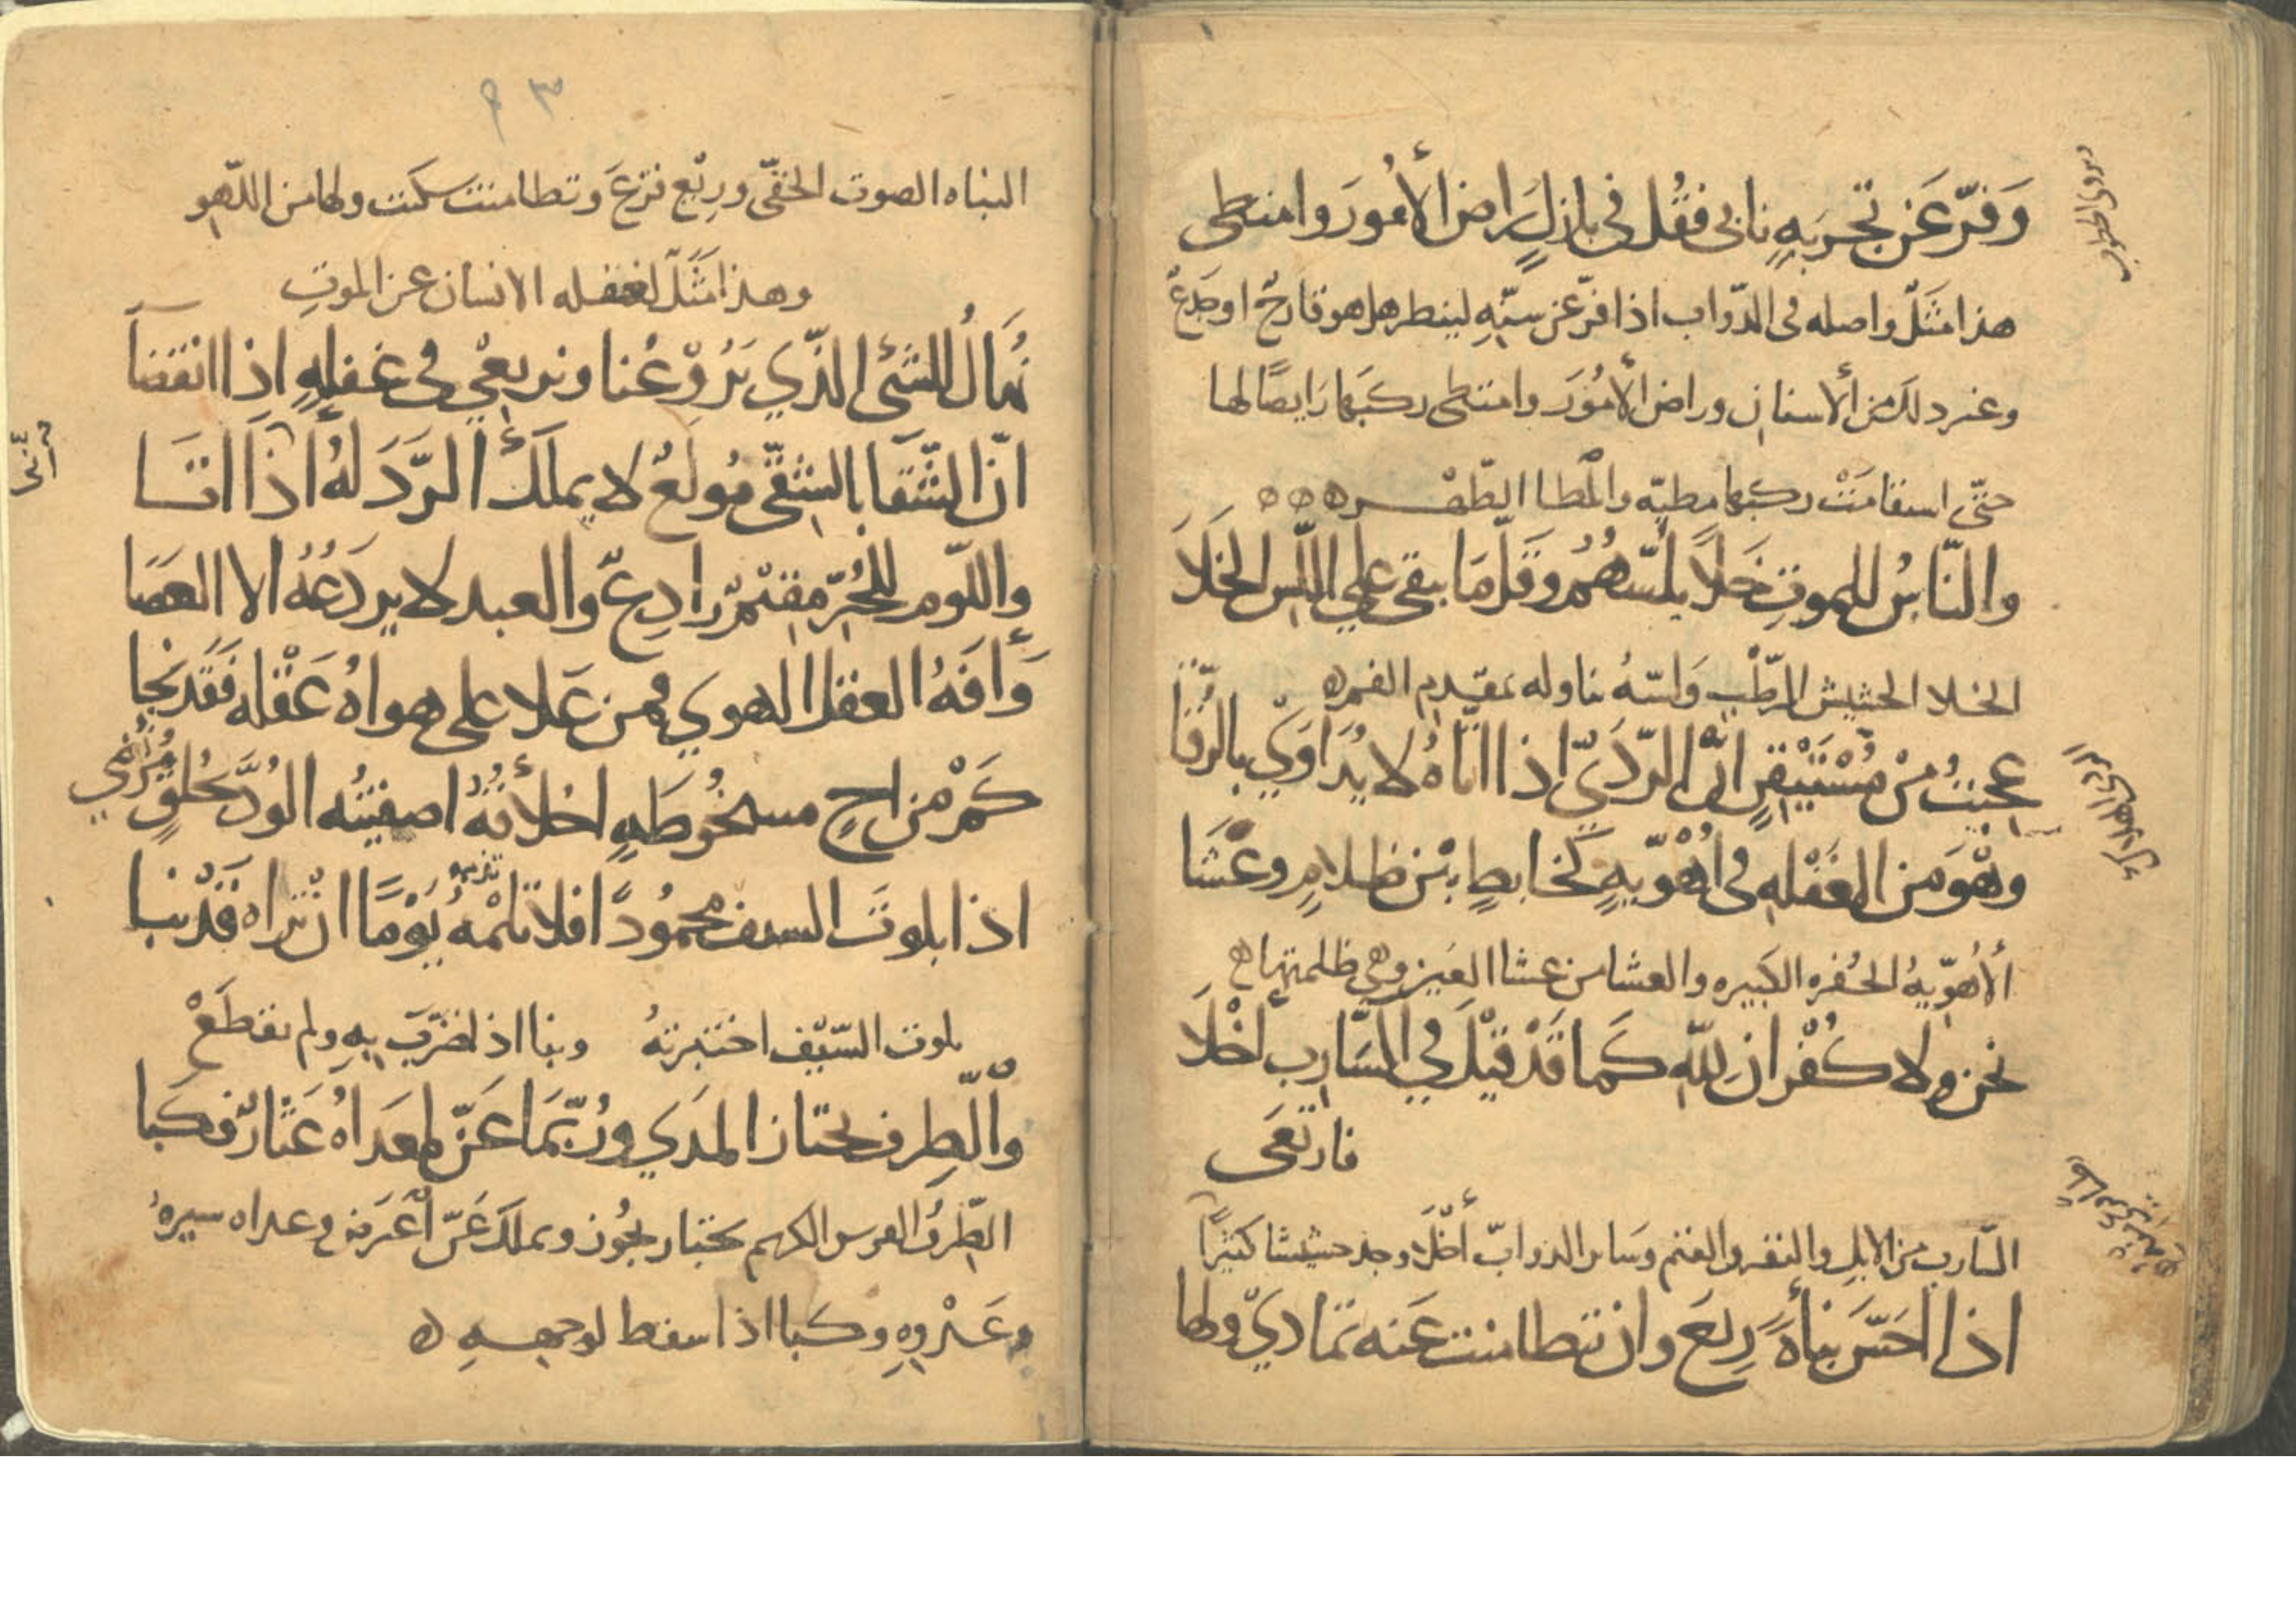 وَفُرَّ عَن تجربَهٍ نابى فقُل فى بازلٍ راض ألأمُورَ وامتطى
هذا مَثَلٌ واصله فى الدّواب اذا فرّ عن سنّهِ لينظر هل هو قارحٌ او جَذعٌ
وغير ذلك من ألاسنان وراض ألأمُورَ وامتطى ركبَها رَايضًا لها
حتّى استقامَتْ ركبها مطيّه والمُطا الظّهْر ه ه ه
والنّاسُ للموتِ خَلًا يلُسّهُمُ وقَلّمَا يبقى على اللّسّ الخَلَا
الخلا الحشيش الرّطْب وَلسّهُ تناوله بمقدم الفم ه
عجبتُ مِنْ مُسْتَيْقِنٍ أنّ الرّدَيّ اذا اتاهُ لا يُدَاوَيْ بالرُّقَا
وهْوَ من الغَفْلهِ فى أُهْوِيّهٍ كخابطٍ بيْن ظلامٍ وعَشَا
ألأهُوِيّهُ الحُفره الكبيره والعشا من عشا العَين وهى ظلمتها ه
نحن ولا كُفْران للّه كَما قَدْ قيْلَ في السَّارِبِ أخْلَا
فارتعَى
السّارب من الابل والبقر والغنم وسَاير الدوابّ أخْلَا وجد حشيشا كثيرًا
اذا احَسّ نبأهً رِيعَ وان تطامنت عَنه تمادىْ ولها
٩٣
النباه الصوت الخفّى ورِيْع فزِعَ وتطامنت سكَنت ولها من اللّهو
وهذا مَثَلٌ لغفله الانسان عن الموتِ
نُهَالُ للشئ الذّي يَرُوْعُنا ونرتعْي فى غفلهٍ إذا انقضَا
انّ الشّقَا بالشقّى مُولَعٌ لا يملك ألرّدَ لهُ اذَا اتَا
واللّوم للحُرّ مقيْمٌ رادِعٌ والعبد لا يردَعُهُ الا العصَا
وَأفَهُ العقل الهوي فمن عَلا على هواهُ عَقْله فَقَد نَجا
كَمْ مْن اخٍ مسخُوطَهٍ اخلأقهُ اصفيتُه الوُدَّ بخُلقٍ مُرْتضَي
اذا بلوتَ السيف محمُودًا فلا تذْمُمْهُ يَوْمًا انْ تراه قَدْ نبا
بلوت السّيْف اختبرتهُ ونبا اذا ضُرِبَ بهِ ولم يقطَعْ
والْطِّرف يجتاز المدَي ورُبّمَا عَنّ لمعدَاهُ عثارٌ فكَبا
الطّرفُ الفرس الكريم يجتاز يجُوز ويملك عَنّ أعْترضَ ومعداه سيرهُ
وعَدْوهِ وكبا اذا سقط لوجههِ ه